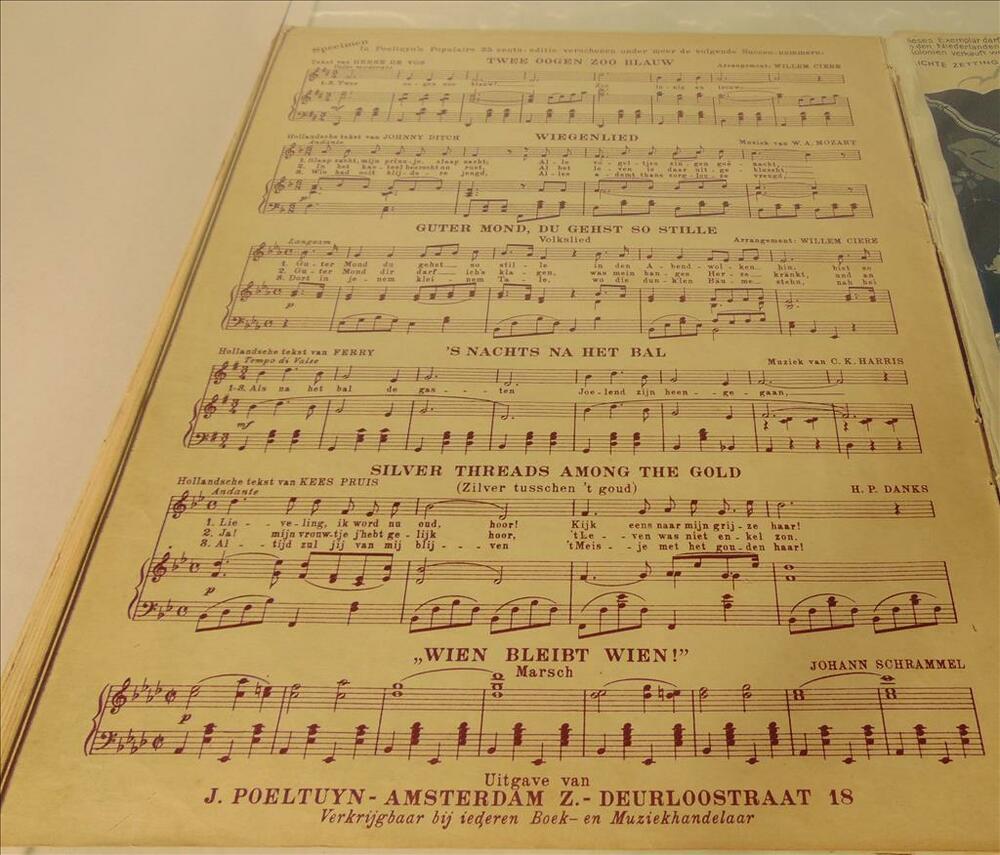 Specimen
In Poeltuyn's Populaire 25 cents-editie verschenen onder meer de volgende Succes-nummers:
TWEE OOGEN ZOO BLAUW
Tekst van HERRE DE VOS
Arrangement: WILLEM CIERE
1-3. Twee oo-gen zoo blauw!
WIEGENLIED
Hollandsche tekst van JOHNNY DITCH
Muziek van W. A. MOZART
Andante
GUTER MOND, DU GEHST SO STILLE
Volkslied
Arrangement: WILLEM CIERE
Langsam
1. Gu-ter Mond du gehst so stil-le in den A-bend-wol-ken hin, bist so
2. Gu-ter Mond dir darf ich's kla-gen, was mein ban-ges Her-ze kränkt, und an
3. Dort in je-nem klei-nem Ta-le, wo die dun-klen Bäu-me stehn, nah bei
p
'S NACHTS NA HET BAL
Hollandsche tekst van FERRY
Muziek van C. K. HARRIS
Tempo di Valse
1-3. Als na het bal de gas-ten Joe-lend zijn heen-ge-gaan,
mf
SILVER THREADS AMONG THE GOLD
(Zilver tusschen 't goud)
Hollandsche tekst van KEES PRUIS
H. P. DANKS
Andante
1. Lie-ve-ling, ik word nu oud, hoor! Kijk eens naar mijn grij-ze haar!
2. Ja! mijn vrouw-tje j'hebt ge-lijk hoor, 'tLe-ven was niet en-kel zon.
3. Al-tijd zul jij van mij blij-ven 'tMeis-je met het gou-den haar!
p
„WIEN BLEIBT WIEN!”
Marsch
JOHANN SCHRAMMEL
p
Uitgave van
J. POELTUYN - AMSTERDAM Z. - DEURLOOSTRAAT 18
Verkrijgbaar bij iederen Boek- en Muziekhandelaar
ICHTE ZETTING